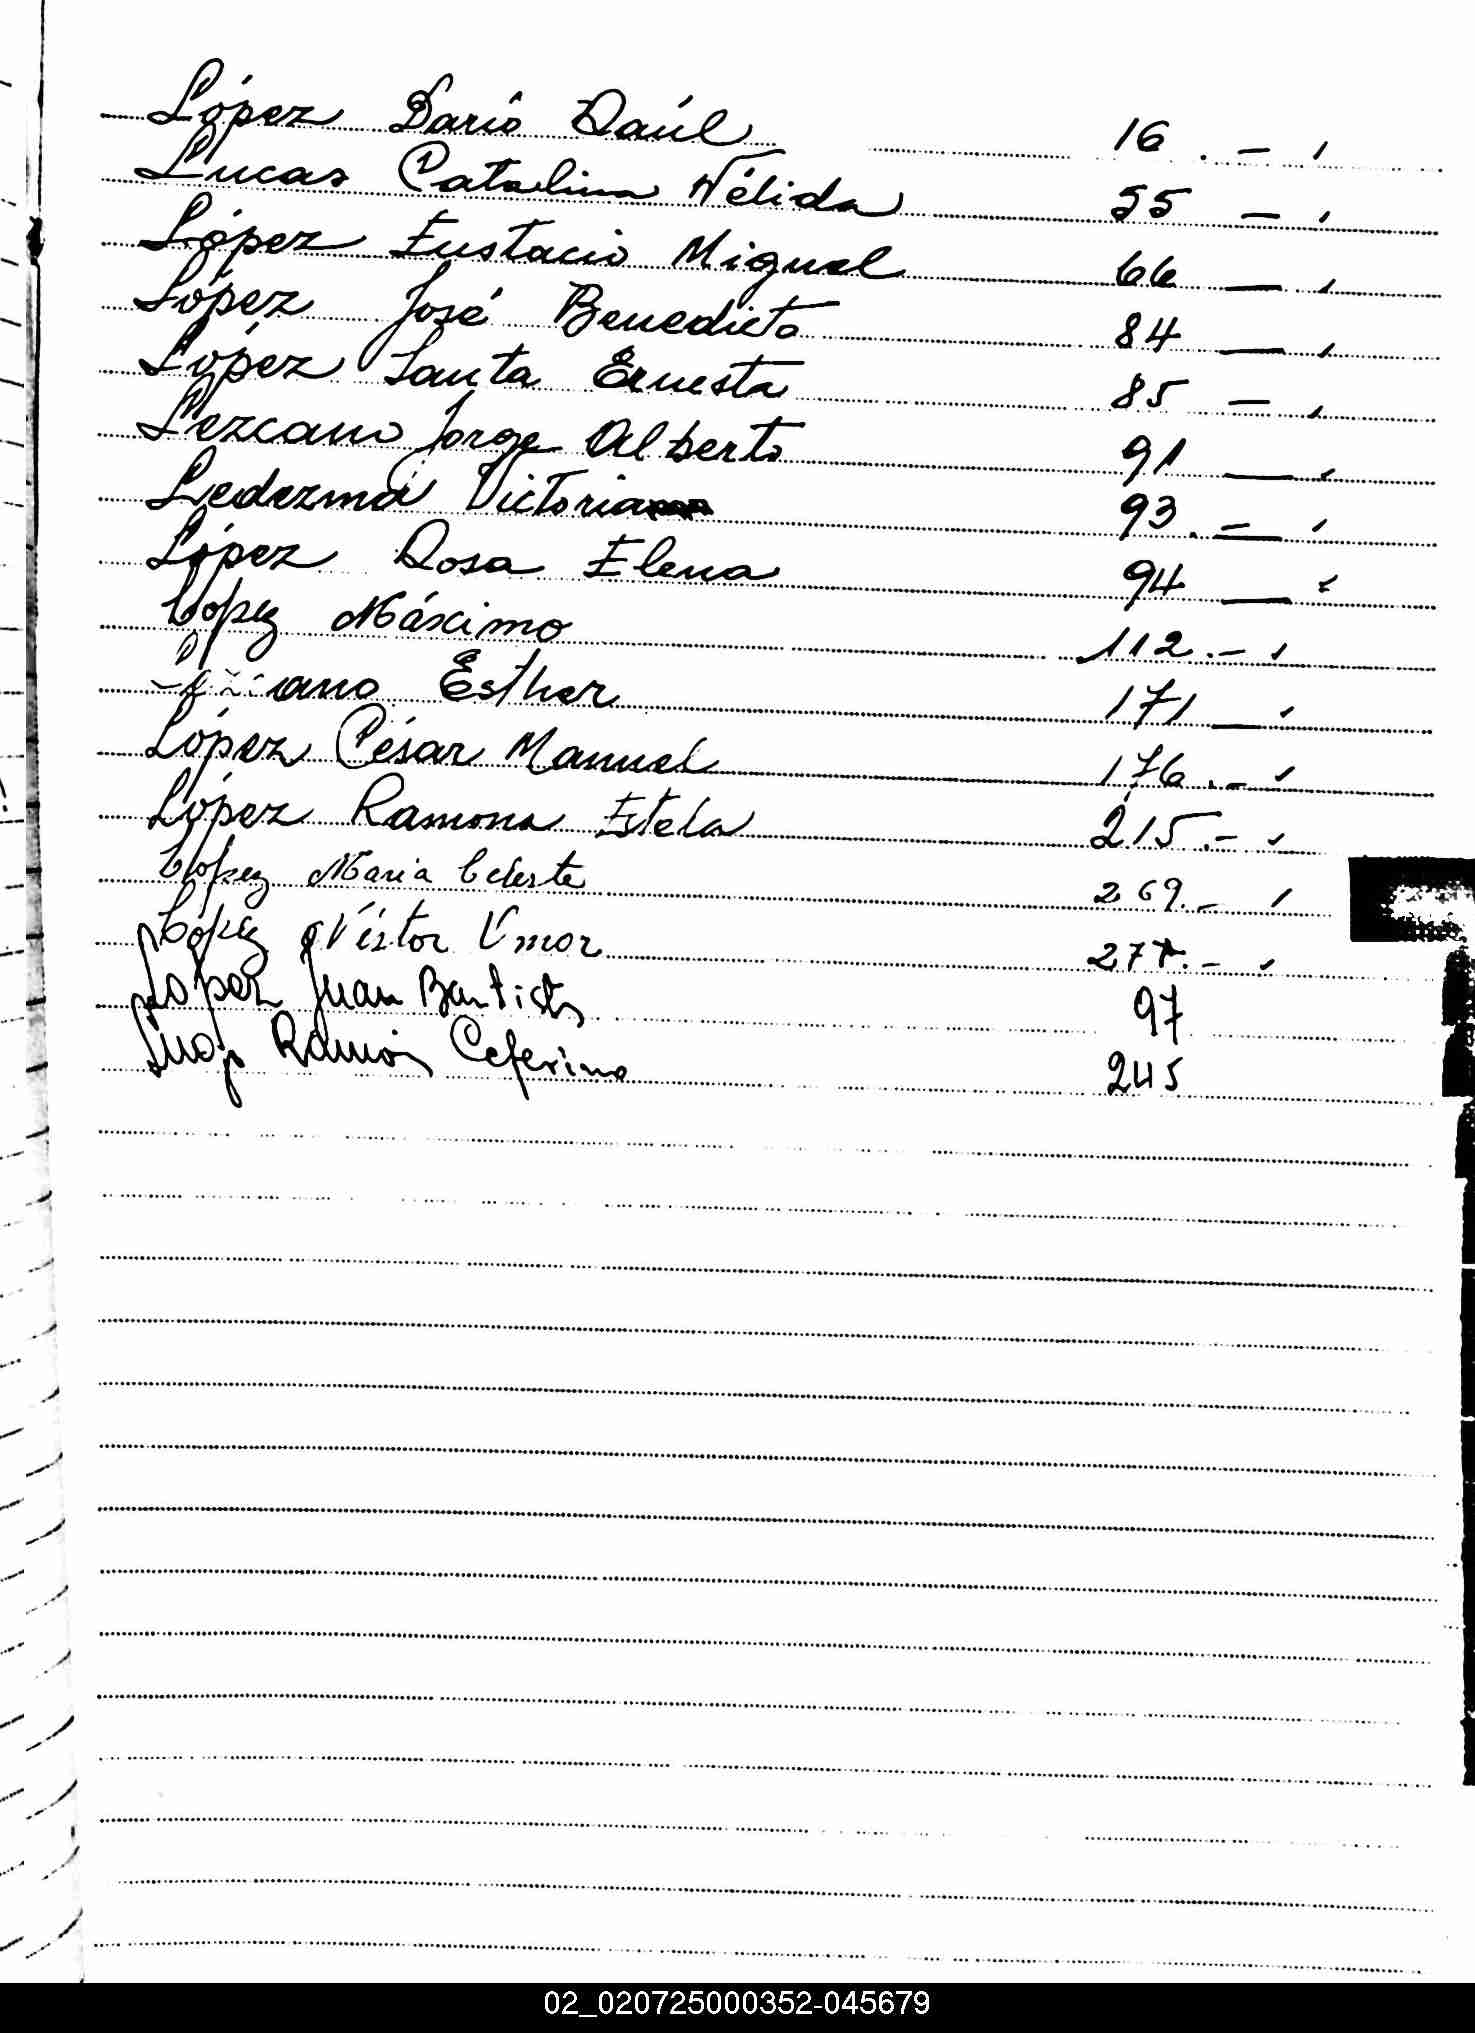 López Darío Raúl 16 . — ,
Lucas Catalina Nélida 55 — ,
López Eustacio Miguel 66 — ,
López José Benedicto 84 — ,
López Santa Ernesta 85 — ,
Lezcano Jorge Alberto 91 — ,
Ledezma Victoria 93 . — ,
López Rosa Elena 94 — ,
López Máximo 112 . — ,
Esther 171 — ,
López César Manuel 176 . — ,
López Ramona Estela 215 . — ,
López Maria Celeste 269 . — ,
López Néstor Omar 277 . — ,
Lopez Juan Bautista 97
Lugo Ramón Ceferino 245
02_020725000352-045679